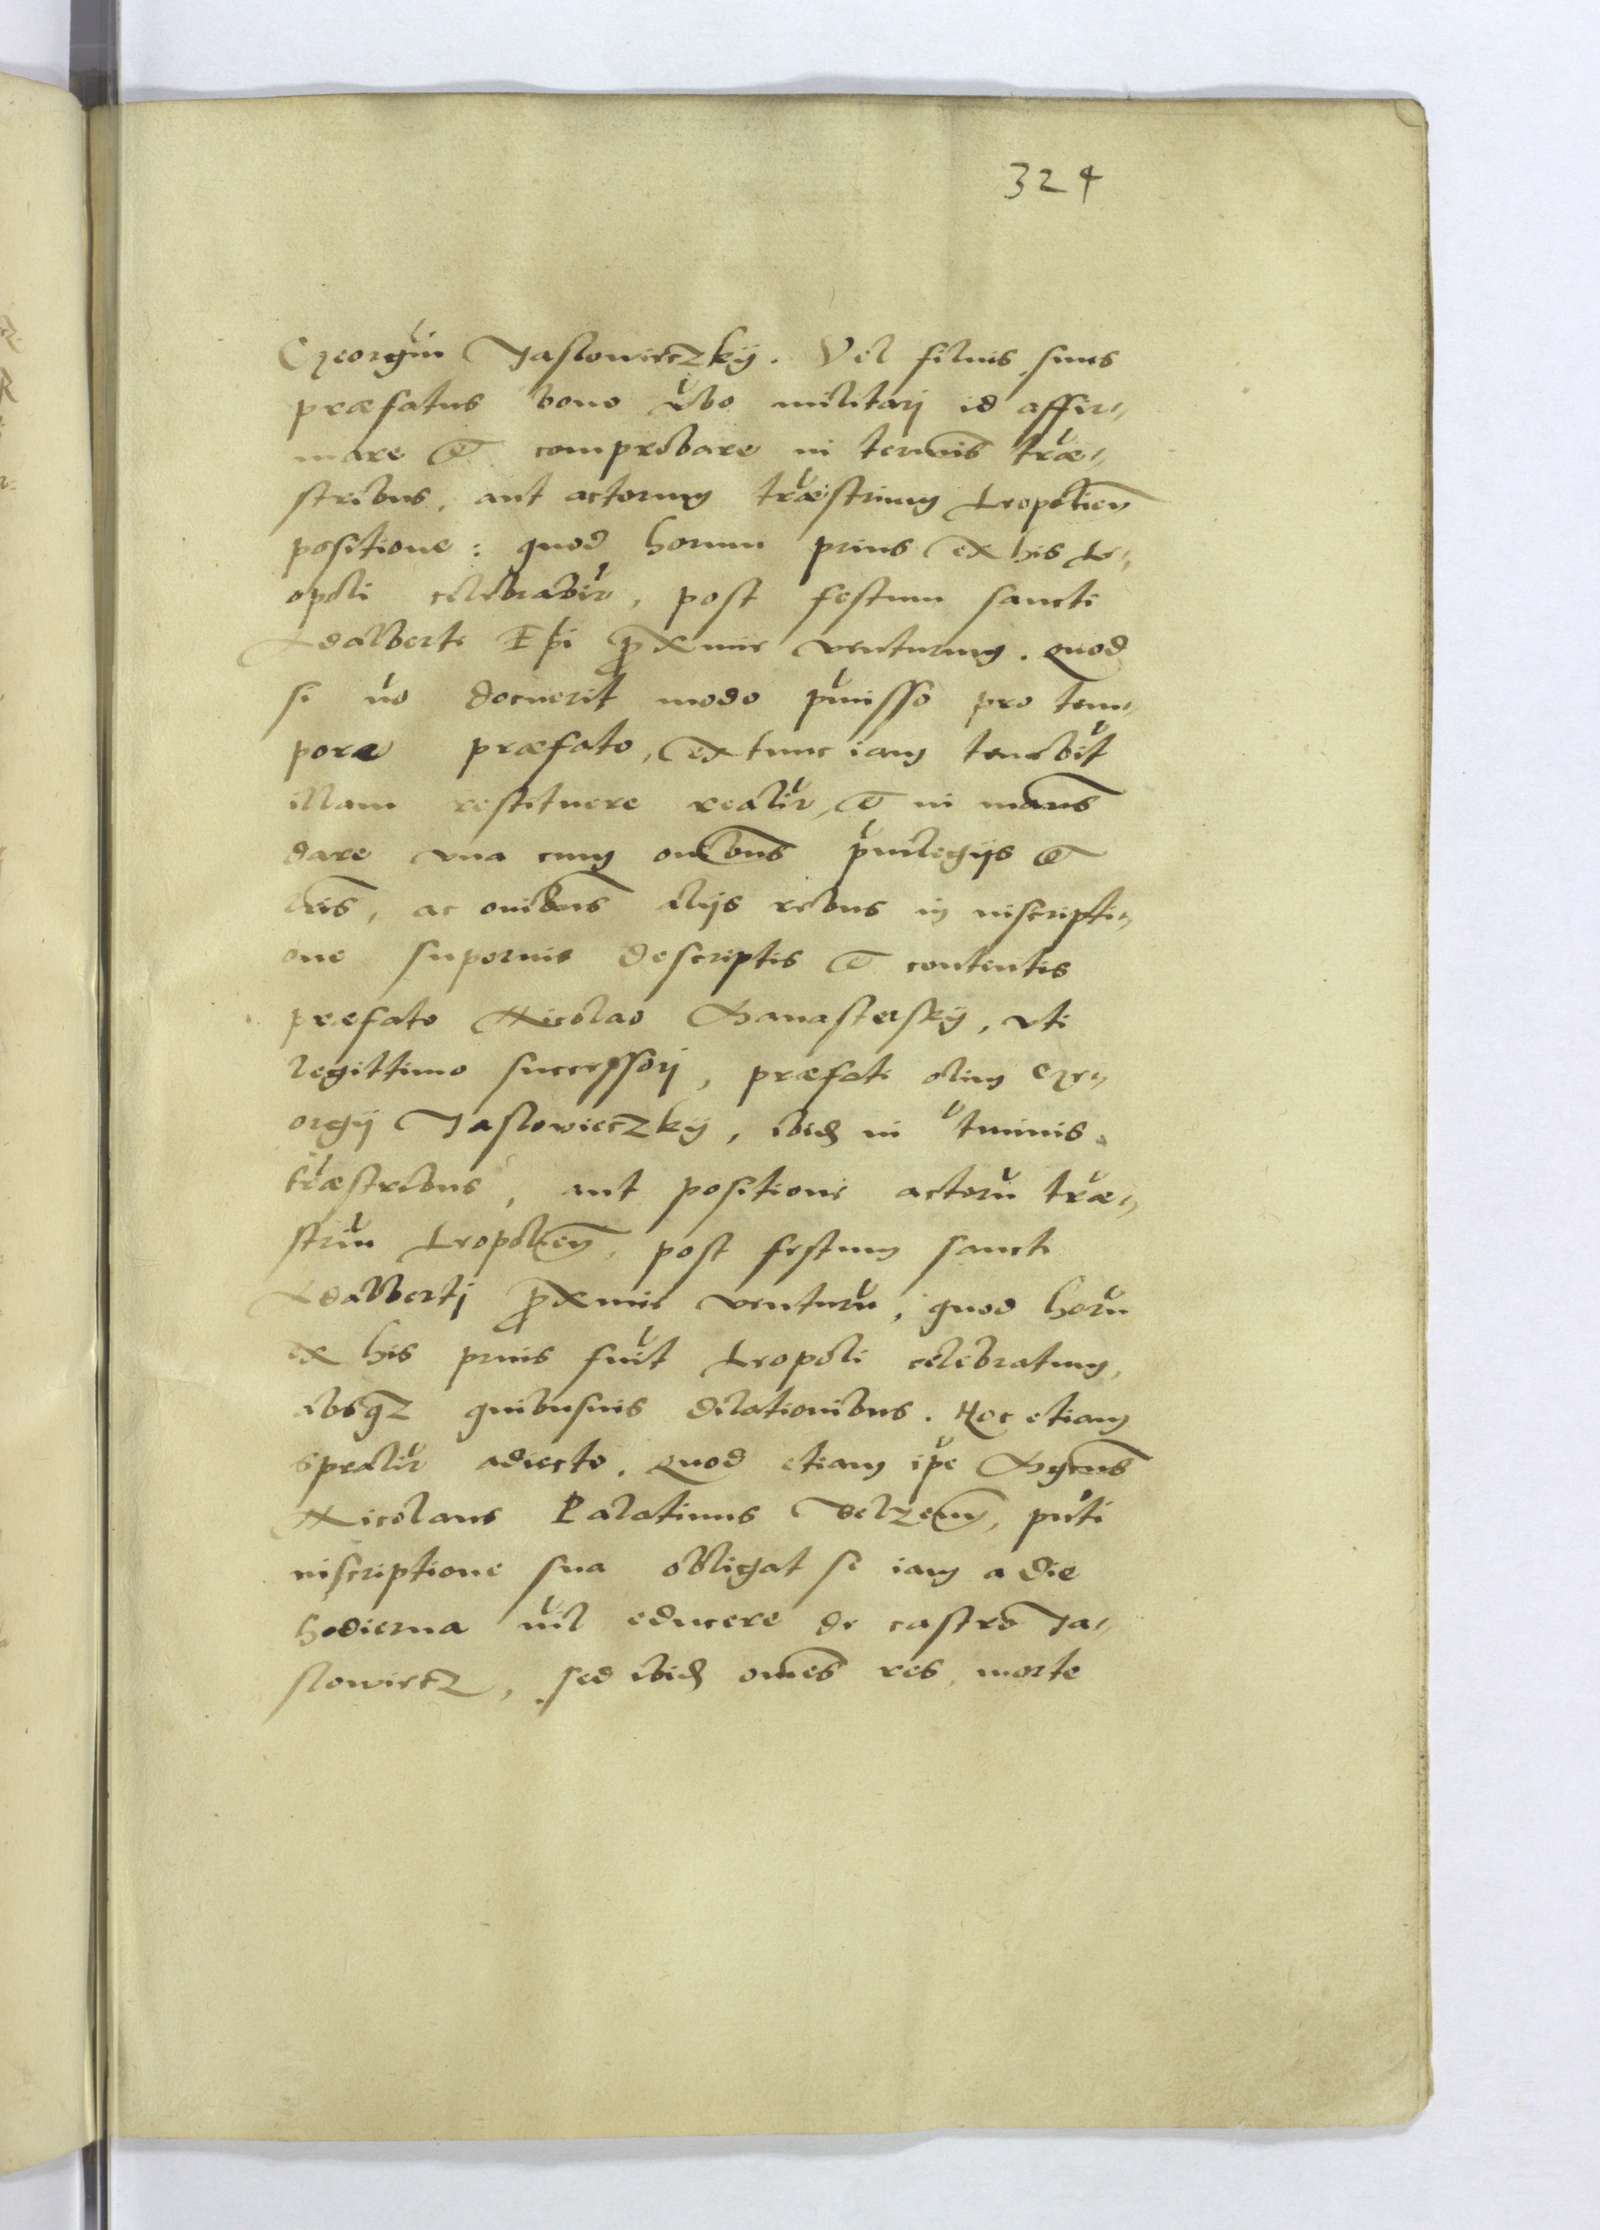 324
Georgiu Jaslowieczkÿ. Vel filius suus
præfatus bono vbo militarj id affir„
mare et comprobare in terminis træ„
stribus, aut actorum træstrium Leopolien
positione: quod horum prius ex his Le„
opoli celebrabir, post festum sancti
Adalberti Epi proxime venturum. Quod
si vo docuerit modo pmisso pro tem„
pore præfato, ex tunc iam tenebit
illam restituere realir, et in manus
dare vna cum omibus puilegijs et
lris, ac omibus alijs rebus in inscripti„
one superius descriptis et contentis
præfato Nicolao Sanasterskÿ, vti
legittimo successorj, præfati olim Ge„
orgij Jaslowieczkÿ, ibid in tminis
træstribus, aut positione actoru træ„
striu Leopolien, post festum sancti
Adalbertj proxime venturu, quod horu
ex his prius fuit Leopoli celebratum,
absqz quibusuis dilationibus. Hoc etiam
spealir adiecto. Quod etiam ipe Mgcus
Nicolaus Palatinus Belzen, pnti
inscriptione sua obligat se iam a die
hodierna nil educere de castro Ja„
slowiecz, sed ibid omes res morte